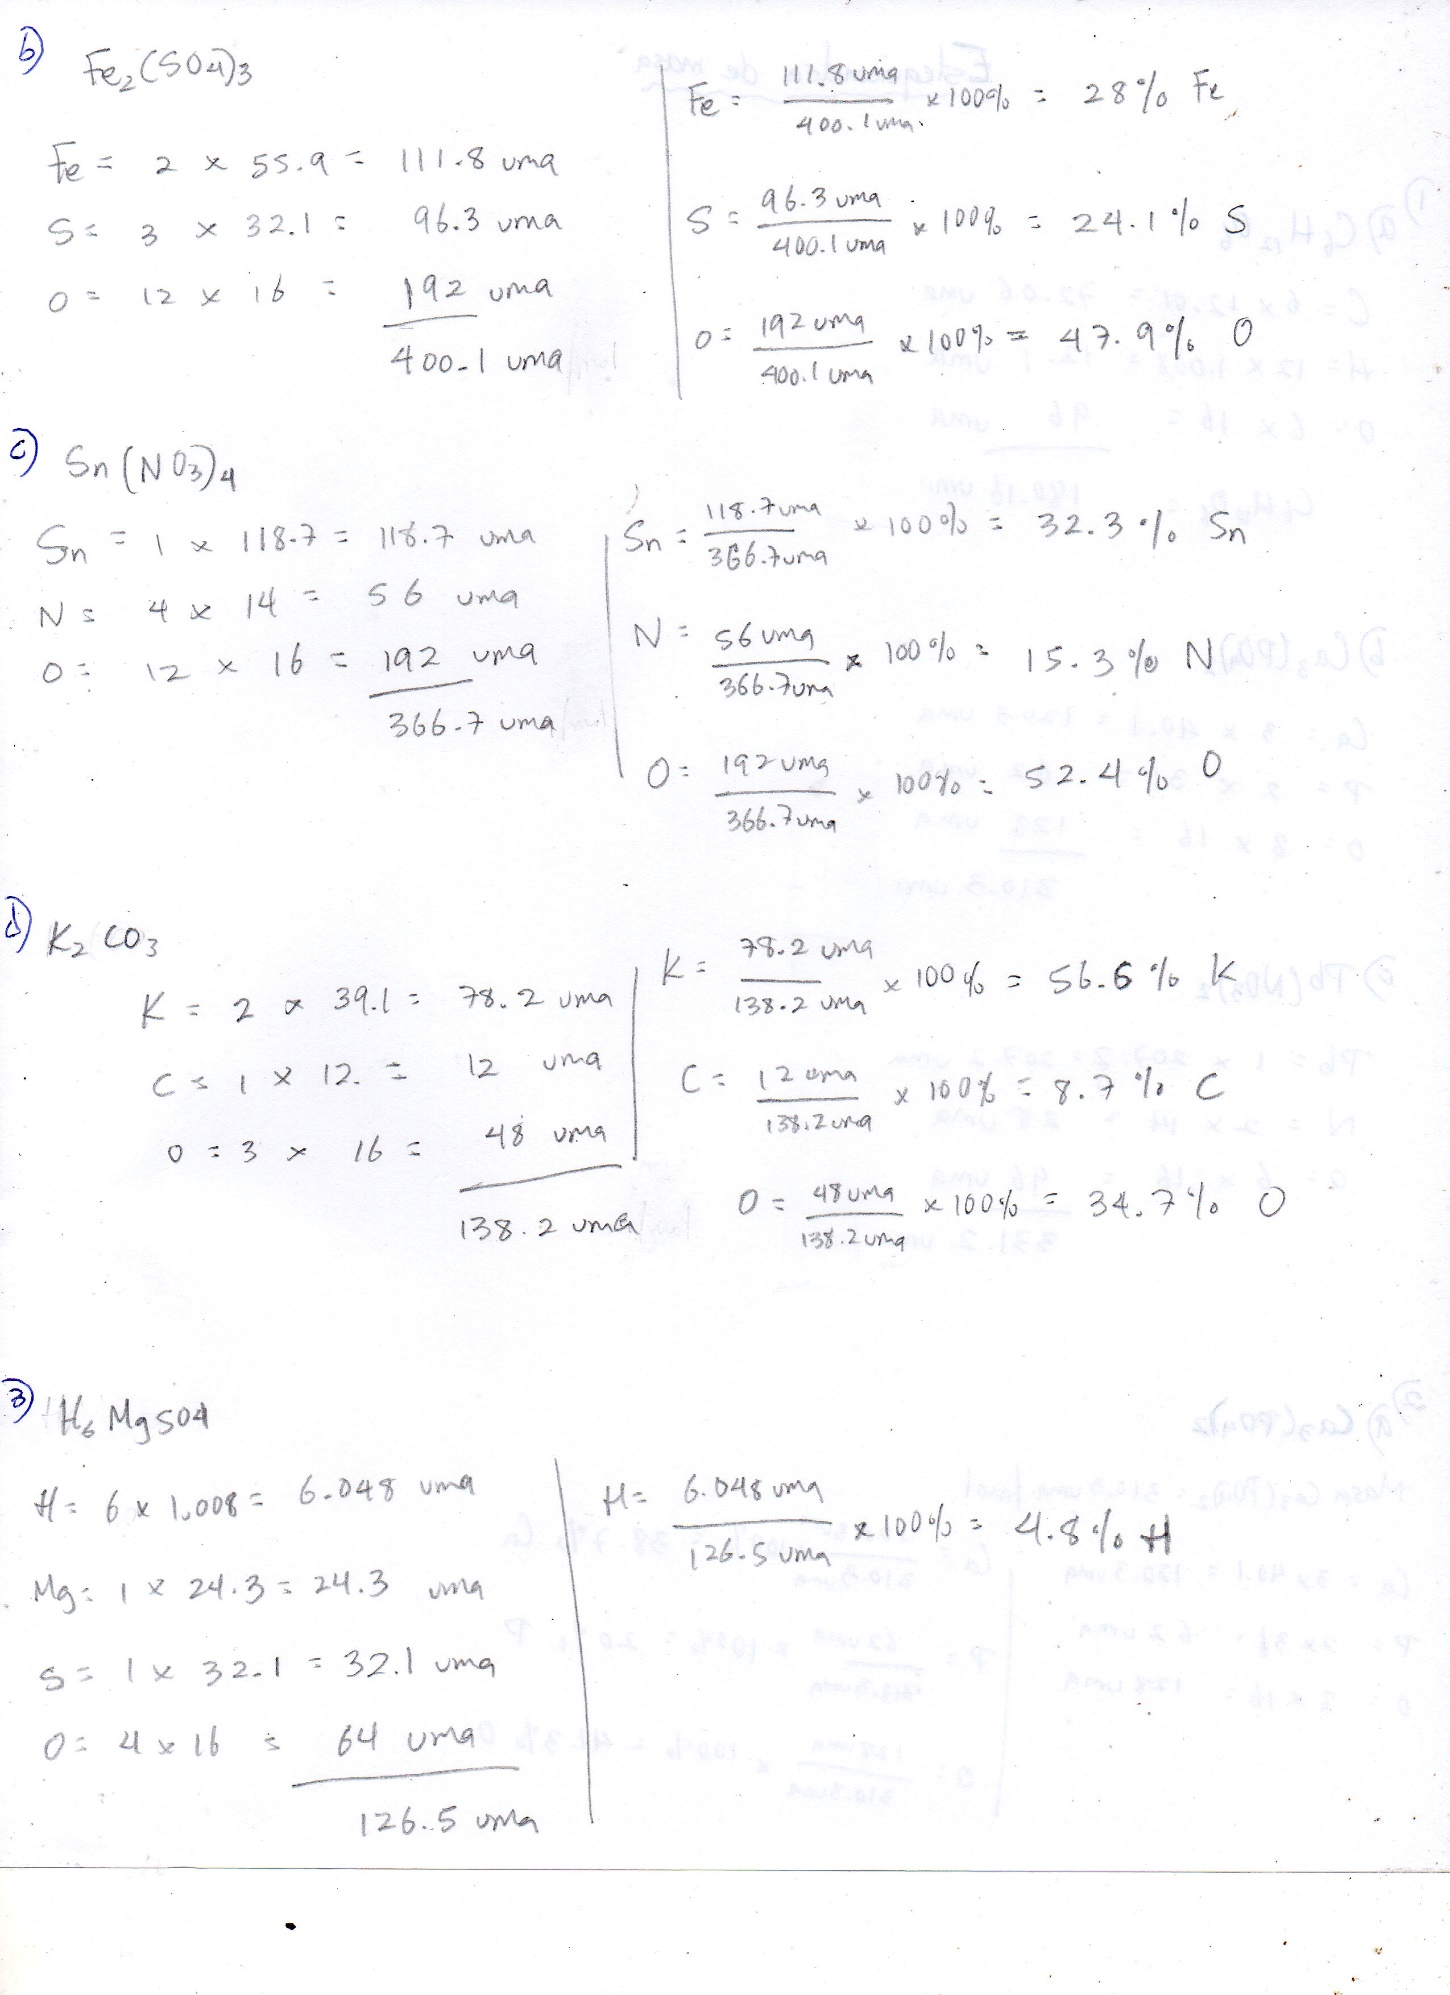 b) Fe₂(SO₄)₃
Fe = 2 x 55.9 = 111.8 uma
S = 3 x 32.1 = 96.3 uma
O = 12 x 16 = 192 uma
400.1 uma
Fe = 111.8 uma / 400.1 uma x 100% = 28% Fe
S = 96.3 uma / 400.1 uma x 100% = 24.1% S
O = 192 uma / 400.1 uma x 100% = 47.9% O
c) Sn(NO₃)₄
Sn = 1 x 118.7 = 118.7 uma
N = 4 x 14 = 56 uma
O = 12 x 16 = 192 uma
366.7 uma
Sn = 118.7 uma / 366.7 uma x 100% = 32.3% Sn
N = 56 uma / 366.7 uma x 100% = 15.3% N
O = 192 uma / 366.7 uma x 100% = 52.4% O
d) K₂CO₃
K = 2 x 39.1 = 78.2 uma
C = 1 x 12. = 12 uma
O = 3 x 16 = 48 uma
138.2 uma
K = 78.2 uma / 138.2 uma x 100% = 56.6% K
C = 12 uma / 138.2 uma x 100% = 8.7% C
O = 48 uma / 138.2 uma x 100% = 34.7% O
3) H₆MgSO4
H = 6 x 1.008 = 6.048 uma
Mg = 1 x 24.3 = 24.3 uma
S = 1 x 32.1 = 32.1 uma
O = 4 x 16 = 64 uma
126.5 uma
H = 6.048 uma / 126.5 uma x 100% = 4.8% H